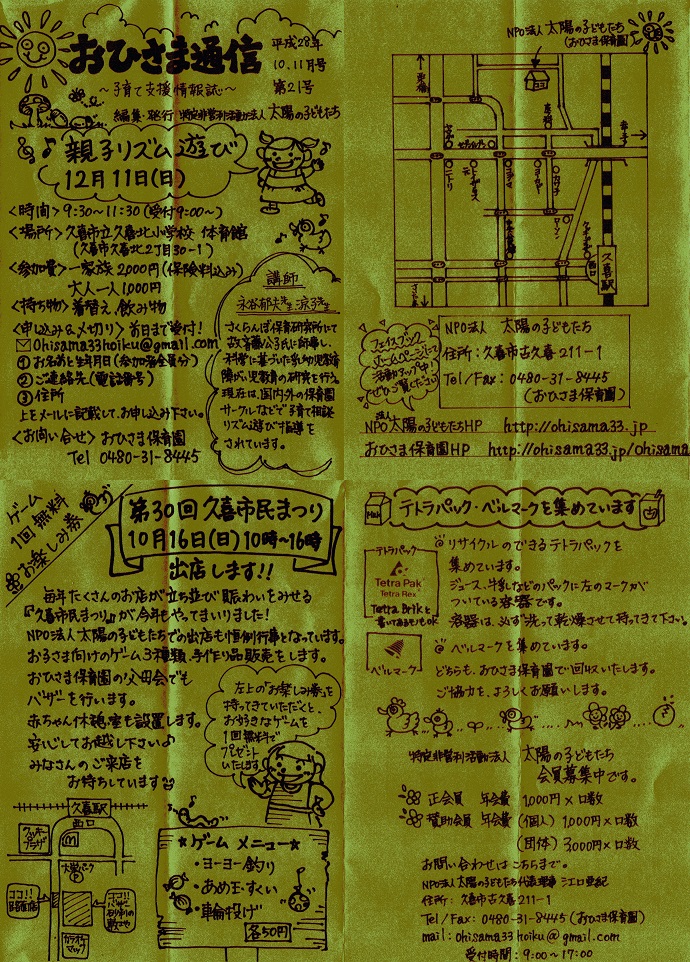 おひさま通信
平成28年
10.11月号
第21号
～子育て支援情報誌～
編集・発行 特定非営利活動法人 太陽の子どもたち
親子リズム遊び
12月11日(日)
<時間> 9:30～11:30 (受付9:00～)
<場所> 久喜市立久喜北小学校 体育館
(久喜市久喜北2丁目30-1)
<参加費> 一家族 2,000円 (保険料込み)
大人一人 1,000円
<持ち物> 着替え、飲み物
<申し込み&〆切り> 前日まで受付!
✉ Ohisama33hoiku@gmail.com
①お名前と生年月日(参加者全員分)
②ご連絡先(電話番号)
③住所
上をメールに記載して、お申し込み下さい。
<お問い合せ> おひさま保育園
Tel 0480-31-8445
講師
さくらんぼ保育研究所にて
故斉藤公子氏に師事し、
科学に基づいた乳幼児教育
障がい児教育の研究を行う。
現在は、国内外の保育園
サークルなどで子育て相談
リズム遊び指導を
されています。
NPO法人 太陽の子どもたち
(おひさま保育園)
ニトリ
久喜駅
西口
フェイスブック
ホームページにて
活動アップ中!
ぜひご覧ください
NPO法人 太陽の子どもたち
住所:久喜市古久喜211-1
Tel/Fax: 0480-31-8445
(おひさま保育園)
NPO法人 太陽の子どもたちHP http://ohisama33.jp
おひさま保育園HP http://ohisama33.jp/ohisama
ゲーム
1回無料
お楽しみ券
第30回 久喜市民まつり
10月16日(日)10時～16時
出店します!!
毎年たくさんのお店が立ち並び賑わいをみせる
『久喜市民まつり』が今年もやってまいりました!
NPO法人太陽の子どもたちでの出店も恒例行事となっています。
お子さま向けのゲーム3種類、手作り品販売をします。
おひさま保育園の父母会でも
バザーを行います。
赤ちゃん休憩室も設置します。
安心してお越し下さい♪
みなさんのご来店を
お待ちしています
左上の「お楽しみ券」を
持ってきていただくと、
お好きなゲームを
1回無料で
プレゼント
いたします
久喜駅
西口
クッキープラザ
大学パーク
P
ココ!!
カラオケマック
★ゲーム メニュー★
・ヨーヨー釣り
・あめ玉すくい
・輪投げ
各50円
テトラパック・ベルマークを集めています
テトラパック
Tetra Pak
Tetra Rex
Tetra Brikと
書いてあるものもOK
リサイクルのできるテトラパックを
集めています。
ジュース、牛乳などのパックに左のマークが
ついている容器です。
容器は、必ず洗って乾燥させて持ってきて下さい。
ベルマーク
ベルマークを集めています。
どちらも、おひさま保育園で回収いたします。
ご協力を、よろしくお願いします。
特定非営利活動法人 太陽の子どもたち
会員募集中です。
正会員 年会費 1,000円×口数
賛助会員 年会費 (個人) 1,000円×口数
(団体) 3,000円×口数
お問い合わせはこちらまで。
NPO法人太陽の子どもたち代表理事 江口亜紀
住所: 久喜市古久喜211-1
Tel/Fax: 0480-31-8445 (おひさま保育園)
mail: ohisama33hoiku@gmail.com
受付時間: 9:00～17:00